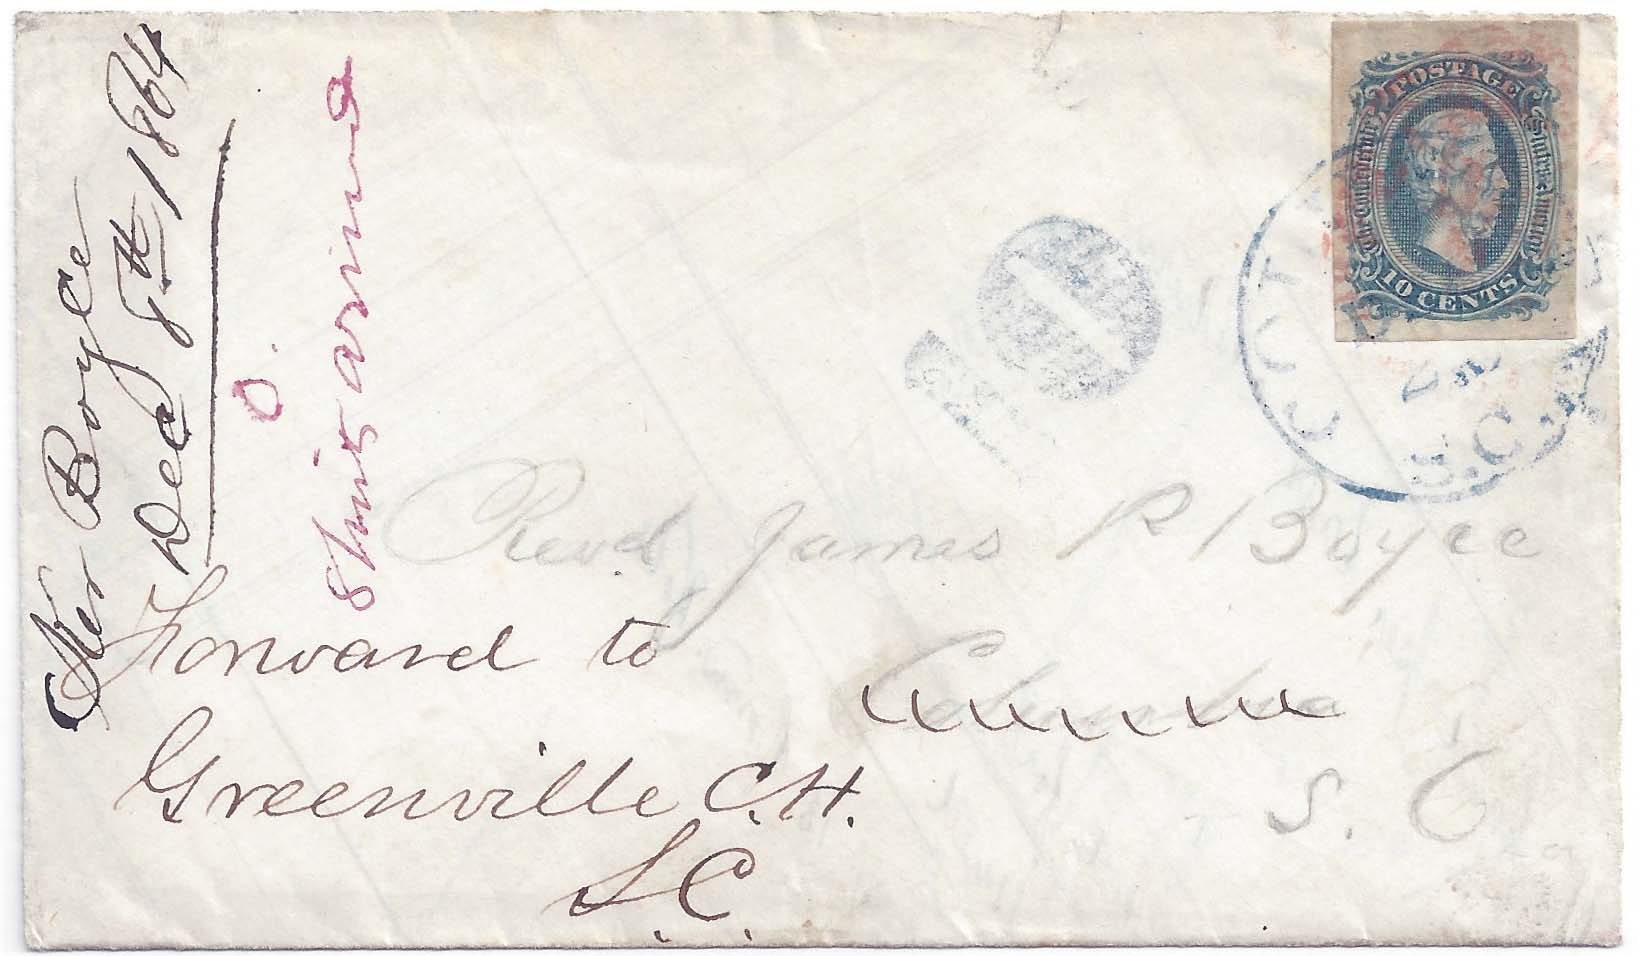 Ker Boyce
Dec 8th 1864
POSTAGE
The Confederate States of America
10 CENTS
10
S.C.
Revd James P Boyce
Columbia
S. C
Forward to
Greenville C.H.
S.C.